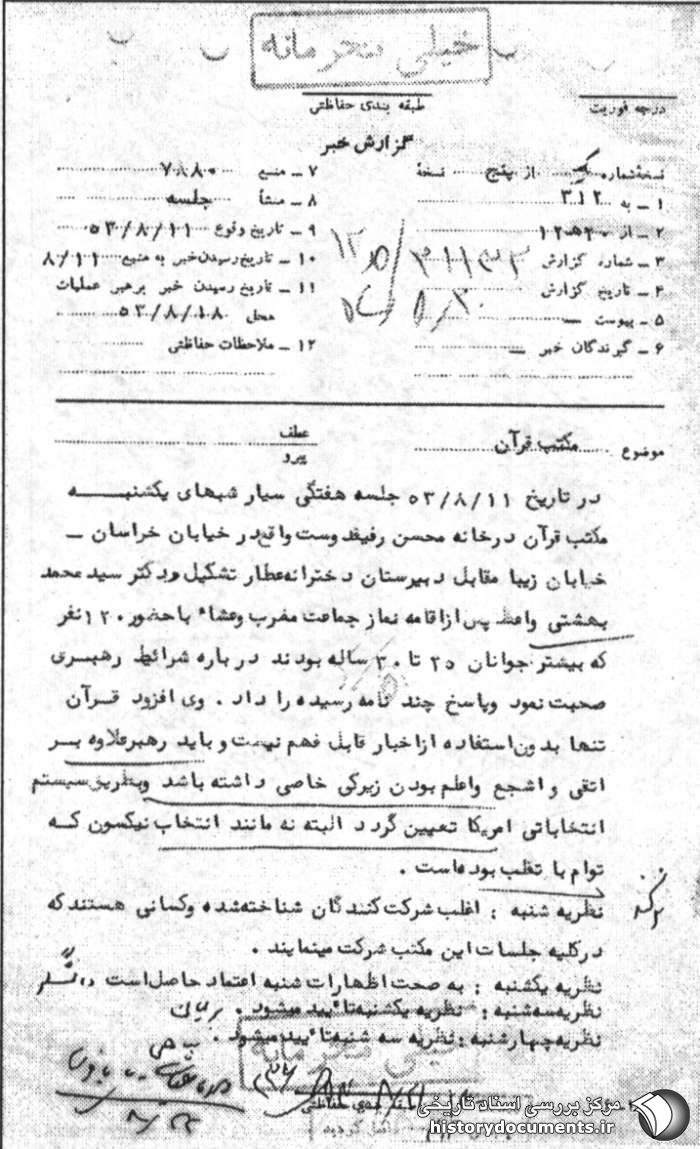 خیلی محرمانه
درجه فوریت
طبقه بندی حفاظتی
گزارش خبر
نسخه شماره یک از پنج نسخه
۱ ـ به ۳۱۲
۲ ـ از ۲۰ ه ۱۲
۳ ـ شماره گزارش
۴ ـ تاریخ گزارش
۵ ـ پیوست ـــ
۶ ـ گیرندگان خبر ـــ
۷ ـ منبع ۷۸۸۰
۸ ـ منشأ جلسه
۹ ـ تاریخ وقوع ۵۳/۸/۱۱
۱۰ ـ تاریخ رسیدن خبر به منبع ۸/۱۱
۱۱ ـ تاریخ رسیدن خبر برهبر عملیات
محل ۵۳/۸/۱۸
۱۲ ـ ملاحظات حفاظتی
موضوع مکتب قرآن
عطف
پیرو
در تاریخ ۵۳/۸/۱۱ جلسه هفتگی سیار شبهای یکشنبه
مکتب قرآن درخانه محسن رفیقدوست واقع در خیابان خراسان ـ
خیابان زیبا مقابل دبیرستان دخترانه عطار تشکیل ودکتر سید محمد
بهشتی واعظ پس ازاقامه نماز جماعت مغرب وعشاء باحضور ۱۲۰ نفر
که بیشتر جوانان ۲۵ تا ۳۰ ساله بودند درباره شرائط رهبری
صحبت نمود وپاسخ چند نامه رسیده را داد . وی افزود قرآن
تنها بدون استفاده ازاخبار قابل فهم نیست و باید رهبر علاوه بر
اتقی و اشجع واعلم بودن زیرکی خاصی داشته باشد وبطریق سیستم
انتخاباتی امریکا تعیین گردد البته نه مانند انتخاب نیکسون که
توام با تقلب بوده است .
نظریه شنبه : اغلب شرکت کنندگان شناخته شده وکسانی هستند که
درکلیه جلسات این مکتب شرکت مینمایند .
نظریه یکشنبه : به صحت اظهارات شنبه اعتماد حاصل است
نظریه سه شنبه : نظریه یکشنبه تأیید میشود .
نظریه چهارشنبه : نظریه سه شنبه تأیید میشود .
خیلی محرمانه
طبقه بندی حفاظتی
مرکز بررسی اسناد تاریخی
historydocuments.ir